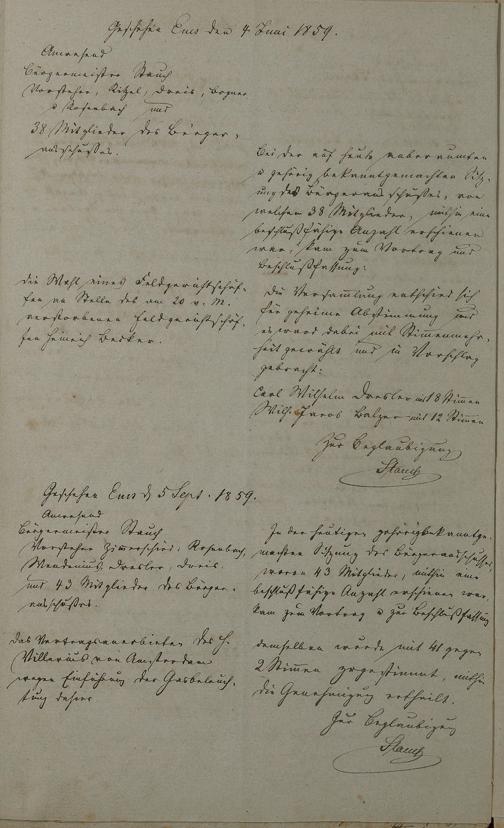 Geschehen Ems den 4. Juni 1859.
Anwesend
Bürgermeister Stauch
Vorsteher, Kitzel, Dreis, Bogner
u Rosenbach und
38 Mitglieder des Bürger-
ausschusses.
Bei der auf heute anberaumten
u gehörig bekanntgemachten Sitz-
ung des Bürgerausschusses, von
welchem 38 Mitglieder, mithin eine
beschlußfähige Anzahl erschienen
war, kam zum Vortrag und
Beschlußfassung:
die Wahl eines Feldgerichtschöf-
fen an Stelle des am 20 v. M.
verstorbenen Feldgerichtschöf-
fen Heinrich Becker.
Die Versammlung entschied sich
für geheime Abstimmung und
es ward dabei mit Stimmenmehr-
heit gewählt und in Vorschlag
gebracht:
Carl Wilhelm Dresler mit 18 Stimmen
Wilh. Jacob Balzer mit 12 Stimmen
Zur Beglaubigung
Stauch
Geschehen Ems d. 5 Sept. 1859.
Anwesend
Bürgermeister Stauch
Vorsteher Rosenbach,
Dresler, Dreis.
und 43 Mitglieder des Bürger-
ausschußes.
In der heutigen gehörig bekanntge-
machten Sitzung des Bürgerausschusses,
waren 43 Mitglieder, mithin eine
beschlußfähige Anzahl erschienen war,
kam zum Vortrag u zur Beschlußfassung
Das Vertragsanerbieten des H.
von Amsterdam
wegen Einführung der Gasbeleuch-
tung
demselben wurde mit 41 gegen
2 Stimmen zugestimmt, mithin
die Genehmigung ertheilt.
Zur Beglaubigung
Stauch